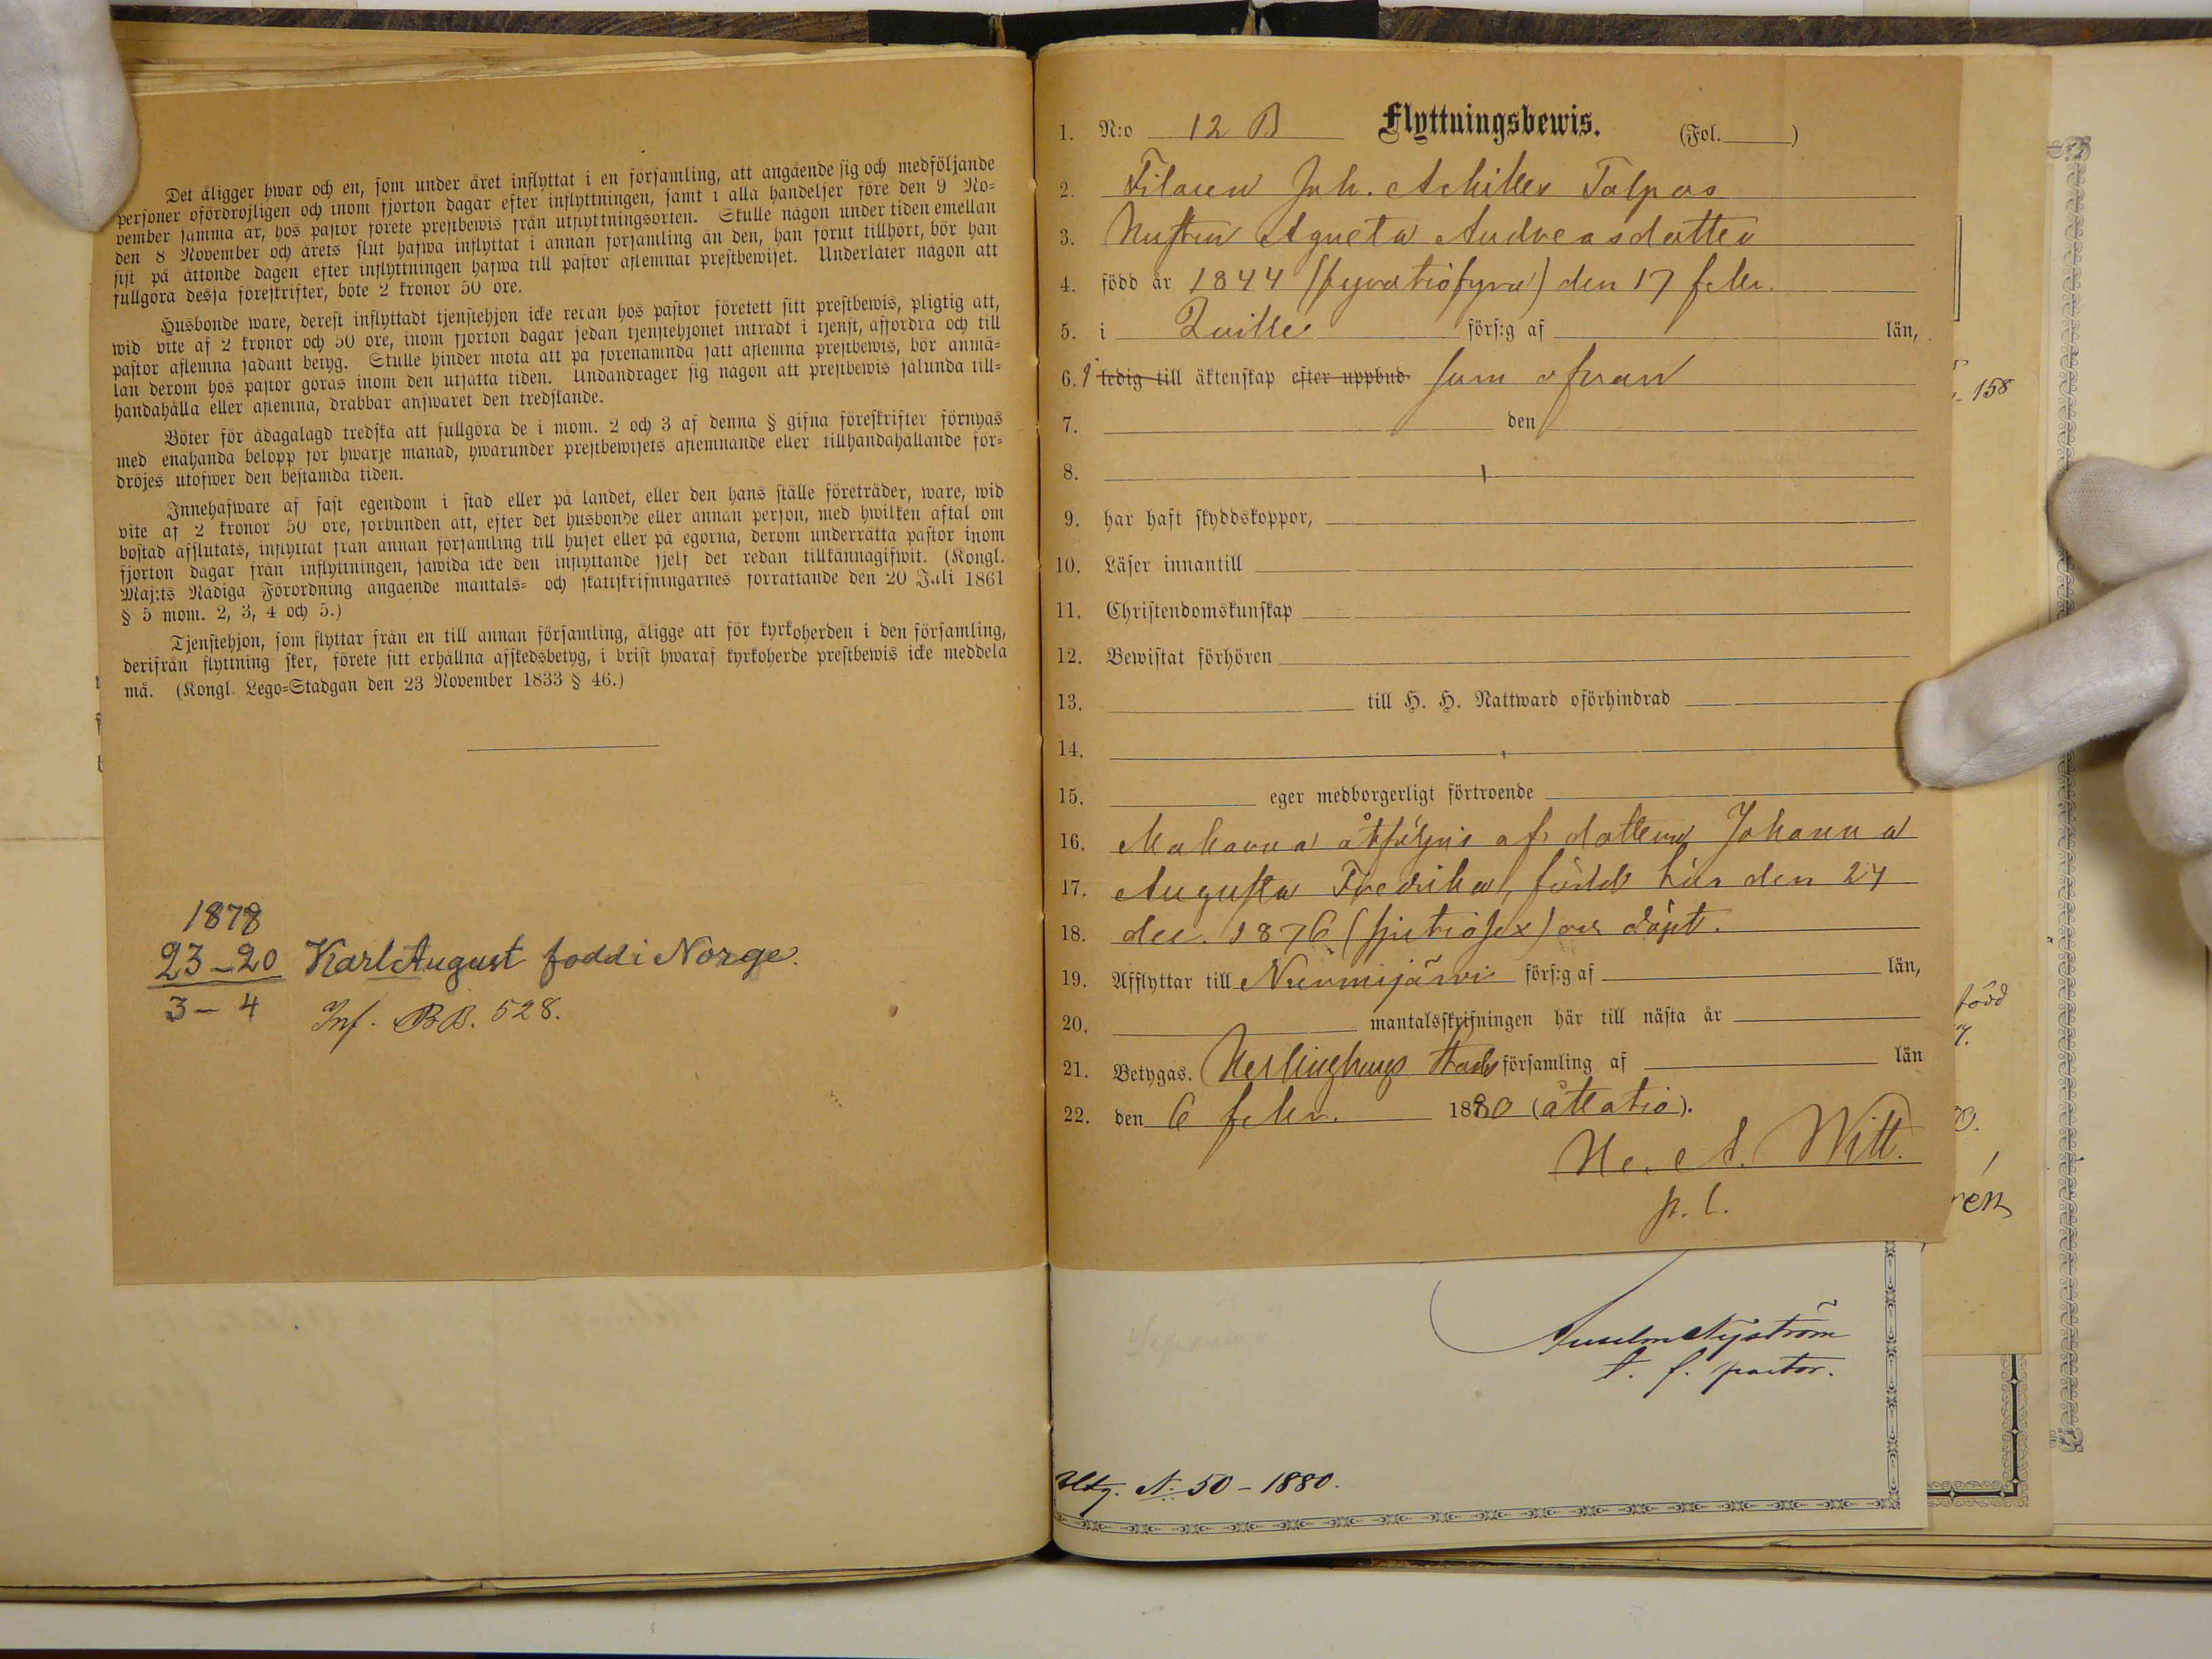 Det åligger hwar och en, som under året inflyttat i en församling, att angående sig och medföljande
personer ofördröjligen och inom fjorton dagar efter inflyttningen, samt i alla händelser före den 9 No-
vember samma år, hos pastor förete prestbewis från utflyttningsorten. Skulle någon under tiden emellan
den 8 November och årets slut hafwa inflyttat i annan församling än den, han förut tillhört, bör han
sist på åttonde dagen efter inflyttningen hafwa till pastor aflemnat prestbewiset. Underlåter någon att
fullgöra dessa föreskrifter, böte 2 kronor 50 öre.
Husbonde ware, derest inflyttadt tjenstehjon icke redan hos pastor företett sitt prestbewis, pligtig att,
wid vite af 2 kronor och 50 öre, inom fjorton dagar sedan tjenstehjonet inträdt i tjenst, affordra och till
pastor aflemna sådant betyg. Skulle hinder möta att på förenämnda sätt aflemna prestbewis, bör anmä-
lan derom hos pastor göras inom den utsatta tiden. Undandrager sig någon att prestbewis sålunda till-
handahålla eller aflemna, drabbar answaret den tredskande.
Böter för ådagalagd tredska att fullgöra de i mom. 2 och 3 af denna § gifna föreskrifter förnyas
med enahanda belopp för hwarje månad, hwarunder prestbewisets aflemnande eller tillhandahållande för-
dröjes utöfwer den bestämda tiden.
Innehafware af fast egendom i stad eller på landet, eller den hans ställe företräder, ware, wid
vite af 2 kronor 50 öre, förbunden att, efter det husbonde eller annan person, med hwilken aftal om
bostad afslutats, inflyttat från annan församling till huset eller på egorna, derom underrätta pastor inom
fjorton dagar från inflyttningen, såwida icke den inflyttande sjelf det redan tillkännagifwit. (Kongl.
Maj:ts Nådiga Förordning angående mantals- och skattskrifningarnes förrättande den 20 Juli 1861
§ 5 mom. 2, 3, 4 och 5.)
Tjenstehjon, som flyttar från en till annan församling, åligge att för kyrkoherden i den församling,
derifrån flyttning sker, förete sitt erhållna afskedsbetyg, i brist hwaraf kyrkoherde prestbewis icke meddela
må. (Kongl. Lego-Stadgan den 23 November 1833 § 46.)
1878
23-20 Karl August född i Norge.
3-4 Inf. BB. 528.
1. N:o 12 B Flyttningsbewis. (Fol. )
2. Filaren Joh. Achilles Talpos
3. Hustru Agneta Andreasdotter
4. född år 1844 (fyratiofyra) den 17 febr.
5. i Quille förs:g af län,
6. i ledig till äktenskap efter uppbud. som ofvan
7. den
8.
9. har haft skyddskoppor,
10. Läser innantill
11. Christendomskunskap
12. Bewistat förhören
13. till H. H. Nattward oförhindrad
14.
15. eger medborgerligt förtroende
16. Makarna åtföljas af dottern Johanna
17. Augusta Fredrika, född här den 24
18. dec. 1876 (sjutiosex) och döpt.
19. Afflyttar till Nurmijärvi förs:g af län,
20. mantalsskrifningen här till nästa år
21. Betygas. Helsinghus stads församling af län
22. den 6 febr. 1880 (åttatio).
He. A. Witt.
p. l.
Anselm Nyström
t. f. pastor.
Utg. N: 50 - 1880.
158
född
7.
0.
rén